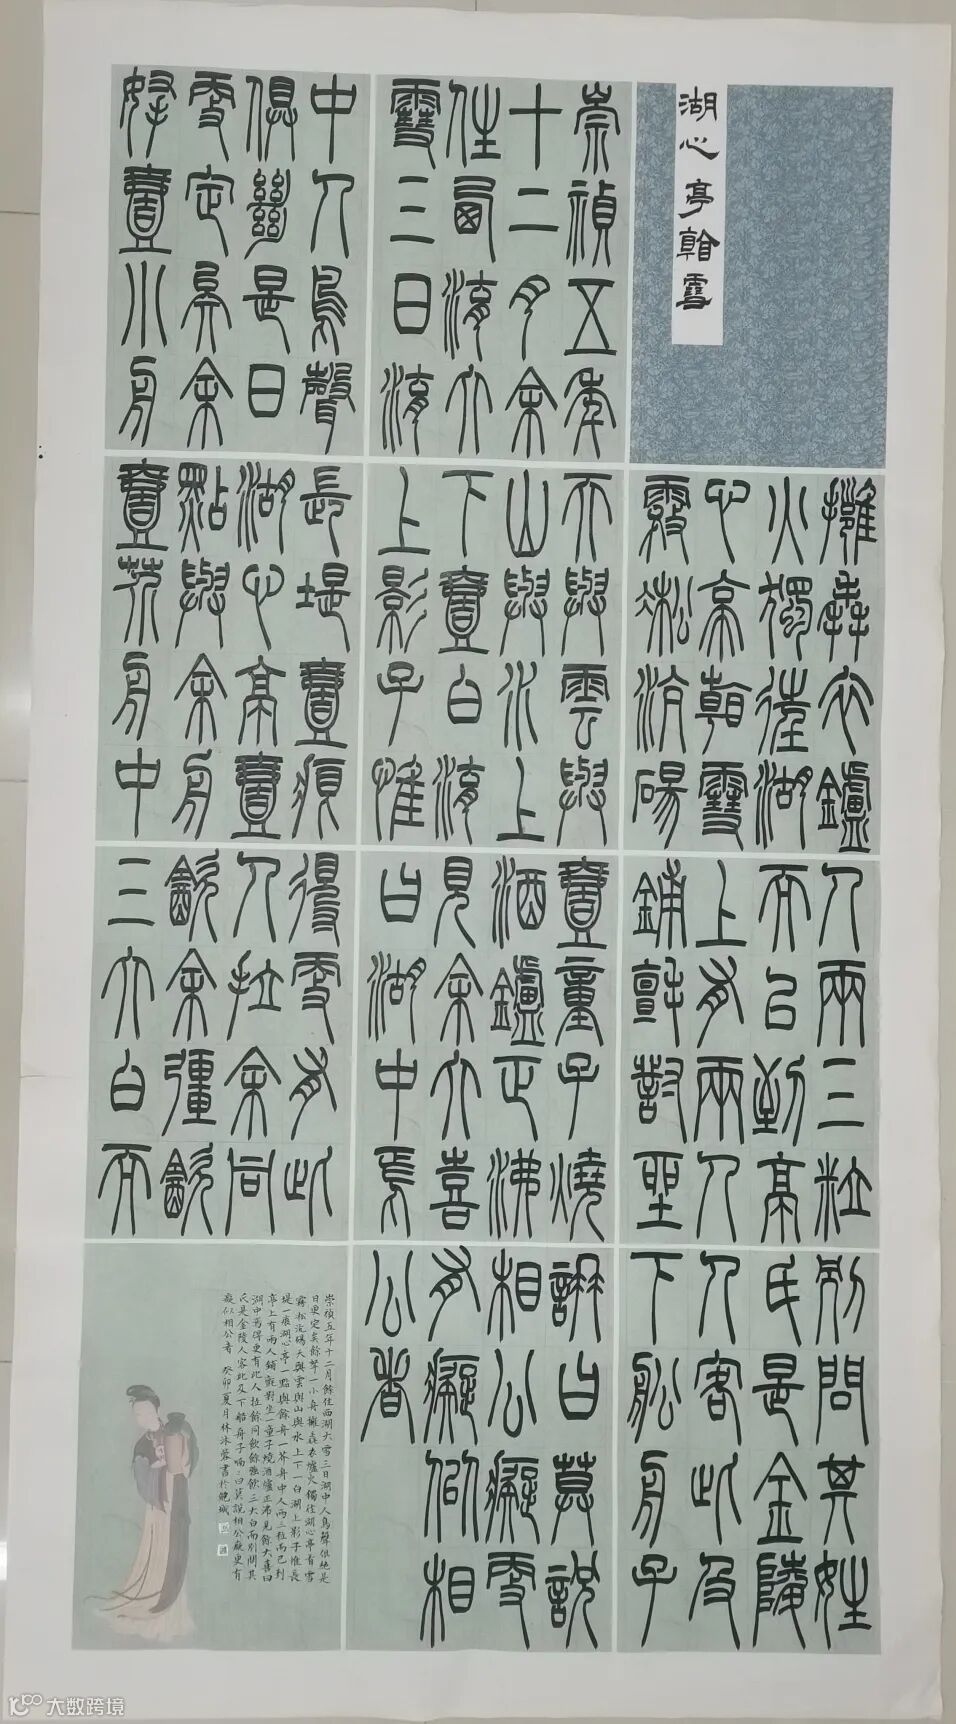 湖心亭看雪
崇禎五年
十二月余
住西湖大
雪三日湖
中人鳥聲
俱絕是日
更定矣余
拏壹小舟
擁毳衣爐
火獨往湖
心亭看雪
霧凇沆碭
天與雲與
山與水上
下壹白湖
上影子惟
長堤壹痕
湖心亭壹
點與余舟
壹芥舟中
人兩三粒
而已到亭
上有兩人
鋪氈對坐
壹童子燒
酒爐正沸
見余大喜
曰湖中焉
得更有此
人拉余同
飲余彊飲
三大白而
別問其姓
氏是金陵
人客此及
下船舟子
喃曰莫說
相公癡更
有癡似相
公者
崇禎五年十二月餘住西湖大雪三日湖中人鳥聲俱絕是
日更定矣餘拏一小舟擁毳衣爐火獨往湖心亭看雪
霧凇沆碭天與雲與山與水上下一白湖上影子惟長
堤一痕湖心亭一點與餘舟一芥舟中人兩三粒而已到
亭上有兩人鋪氈對坐一童子燒酒爐正沸見餘大喜曰
湖中焉得更有此人拉餘同飲餘強飲三大白而別問其
氏是金陵人客此及下船舟子喃喃曰莫說相公癡更有
癡似相公者 癸卯夏月林沐蓉書於皖城
大数跨境